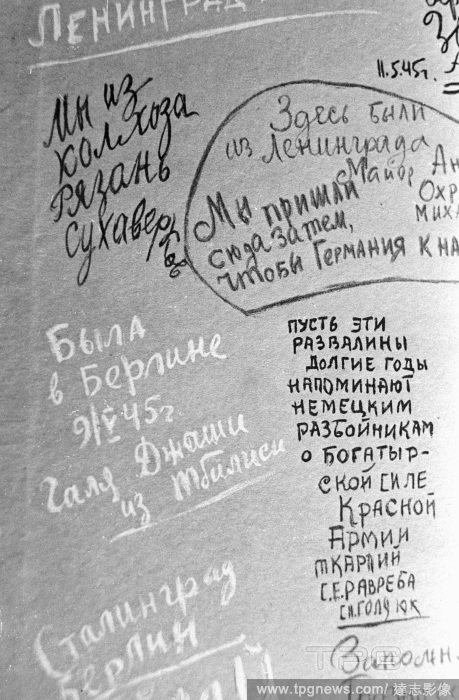 Ленинград
11.5.45г.
Мы из
колхоза
Рязань
Здесь были
из Ленинграда
Майор
Мы пришли
сюда затем,
чтобы Германия к на
Была
в Берлине
9/V 45г.
Галя Джаши
из Тбилиси
ПУСТЬ ЭТИ
РАЗВАЛИНЫ
ДОЛГИЕ ГОДЫ
НАПОМИНАЮТ
НЕМЕЦКИМ
РАЗБОЙНИКАМ
О БОГАТЫР-
СКОЙ СИЛЕ
КРАСНОЙ
АРМИИ
Сталинград
Берлин
TPG
www.tpgnews.com / 達志影像